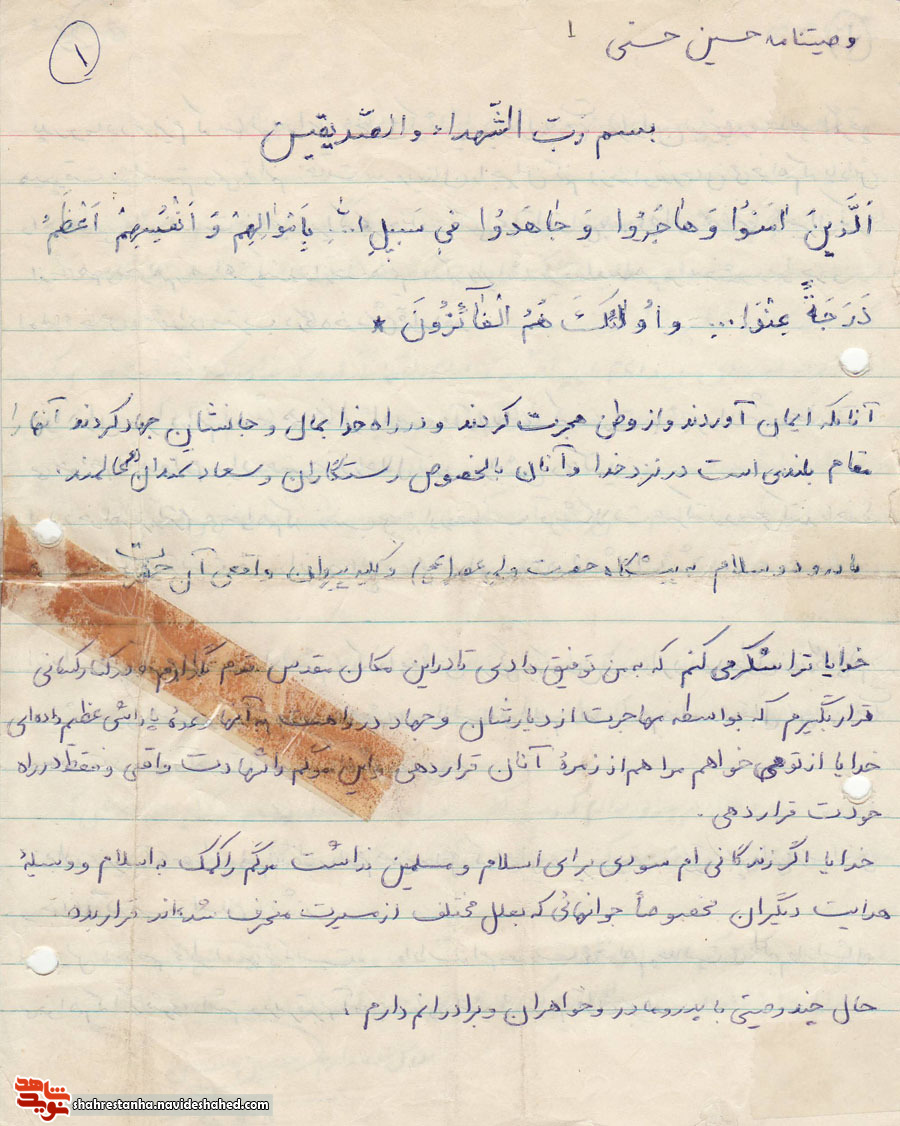 وصیتنامه حسین حسنی ۱
۱
بسم رب الشّهداء والصّدیقین
اَلَّذینَ امَنوُا وَ هاجَرُوا وَ جاهَدوُا فی سَبیلِ ا... بِاَموالِهِمْ وَ اَنْفُسِهِمْ اَعْظَمُ
دَرَجَةً عِنْدَا... و اُولئِکَ هُمُ الْفآئِزُونَ *
آنانکه ایمان آوردند و از وطن هجرت کردند و در راه خدا بمال و جانشان جهاد کردند آنها را
مقام بلندی است در نزد خدا و آنان بالخصوص رستگاران و سعادتمندان عالمند
با درود و سلام به پیشگاه حضرت ولی عصر (عج) و کلیه پیروان واقعی آن حضرت
خدایا ترا شکر می کنم که به من توفیق دادی تا در این مکان مقدس قدم گذارم و در کنار کسانی
قرار بگیرم که بواسطه مهاجرت از دیارشان و جهاد در راهت به آنها وعدۀ پاداشی عظیم داده‌ای
خدایا از تو می خواهم مرا هم از زمرۀ آنان قرار دهی و این مرگم را شهادت واقعی و فقط در راه
خودت قرار دهی .
خدایا اگر زندگانی ام سودی برای اسلام و مسلمین نداشت مرگم را کمک به اسلام و وسیلۀ
هدایت دیگران مخصوصاً جوانهائی که بعلل مختلف از مسیرت منحرف شده‌اند قرار بده
حال چند وصیتی با پدر و مادر و خواهران و برادرانم دارم :
نوید شاهد
shahrestanha.navideshahed.com